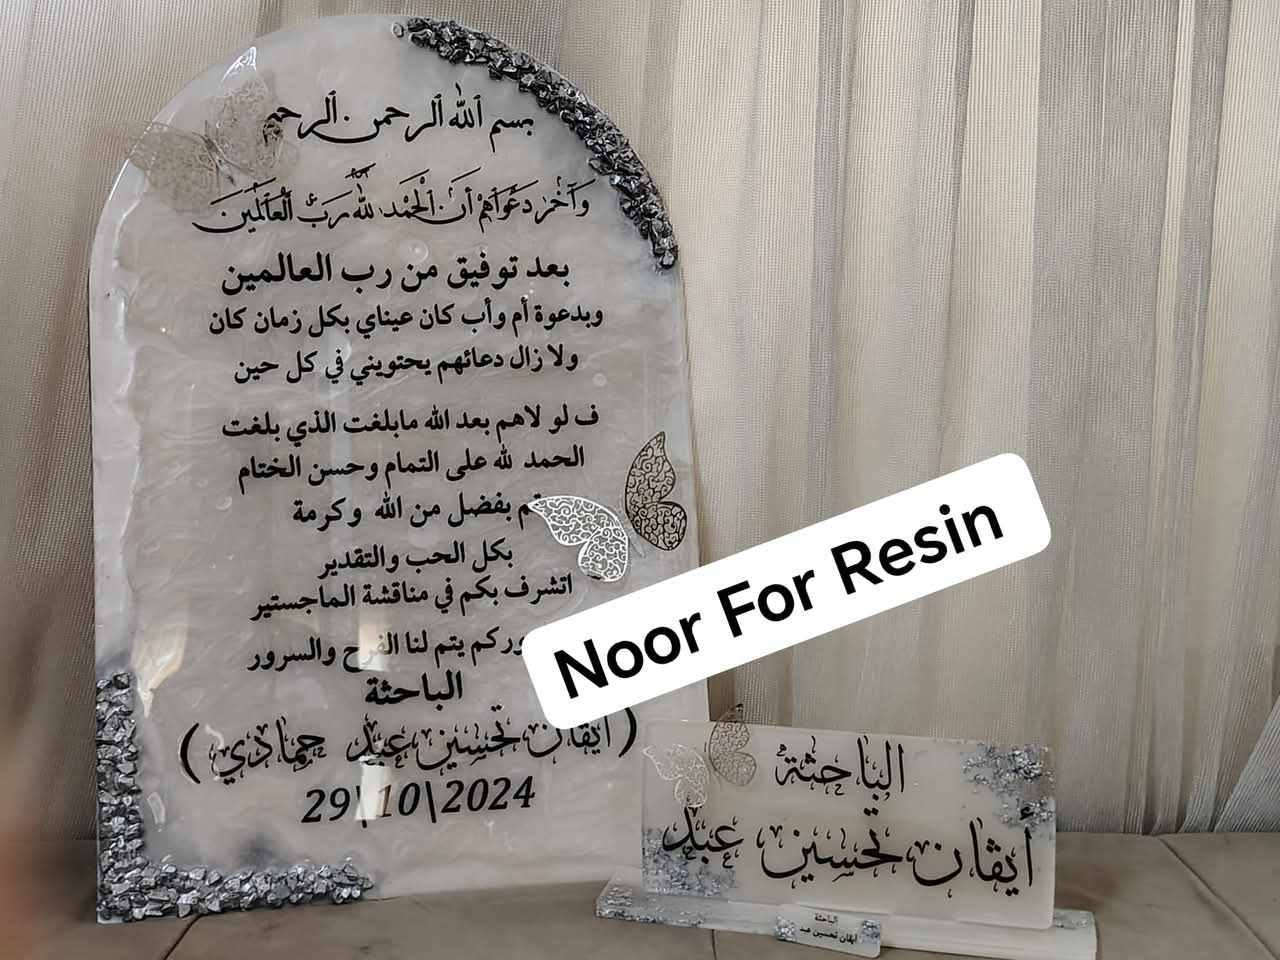 بسم الله الرحمن الرحيم
وَآخَرُ دَعْوَاهُمْ أَنِ الْحَمْدُ لِلَّهِ رَبِّ الْعَالَمِينَ
بعد توفيق من رب العالمين
وبدعوة أم وأب كان عيناي بكل زمان كان
ولا زال دعائهم يحتويني في كل حين
ف لو لاهم بعد الله مابلغت الذي بلغت
الحمد لله على التمام وحسن الختام
بفضل من الله وكرمة
بكل الحب والتقدير
اتشرف بكم في مناقشة الماجستير
يتم لنا الفرح والسرور
الباحثة
(أيڤان تحسين عبد حمادي)
29\10\2024
Noor For Resin
الباحثة
أيڤان تحسين عبد
الباحثة
أيڤان تحسين عبد